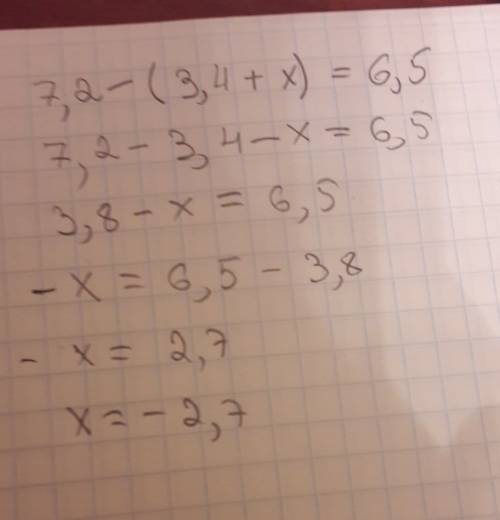 7,2 - (3,4 + x) = 6,5
7,2 - 3,4 - x = 6,5
3,8 - x = 6,5
- x = 6,5 - 3,8
- x = 2,7
x = - 2,7